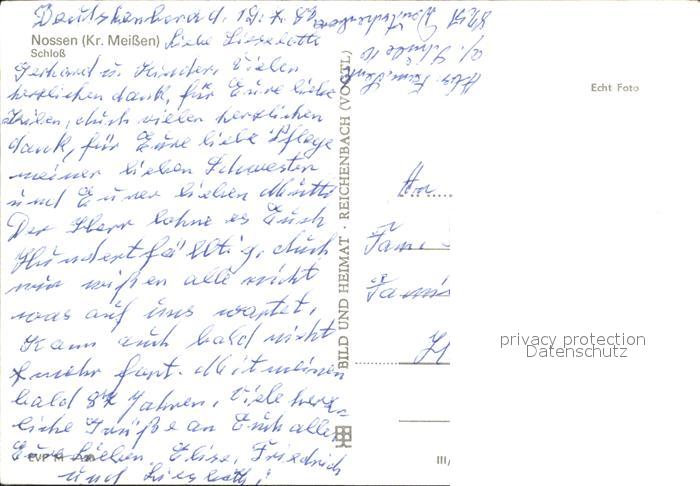 Deutschenbora d. 12.7.
Nossen (Kr. Meißen) Liebe Lieselotte
Schloß
Gerhard u. Kinder, Vielen
herzlichen dank, für Eure liebe
Zeilen, auch vielen herzlichen
dank, für Eure liebe Pflege
meiner lieben Schwester
und Eurer lieben Mutti
Der Herr lohne es Euch
Hundertfältig, auch
wir wißen alle nicht
was auf uns wartet,
Kann auch bald nicht
mehr fort. Mit meinen
bald 84 Jahren, Viele herz-
liche Grüße an Euch alle,
Eure Lieben Elise, Friedrich
und Lieselott!
BILD UND HEIMAT · REICHENBACH (VOGTL)
Echt Foto
An
Fam
privacy protection
Datenschutz
III/